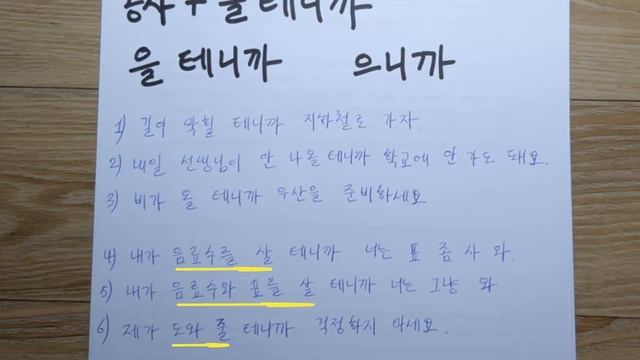 동사 + 을 테니까
을 테니까 으니까
1) 길이 막힐 테니까 지하철로 가자.
2) 내일 선생님이 안 나올 테니까 학교에 안 가도 돼요.
3) 비가 올 테니까 우산을 준비하세요.
4) 내가 음료수를 살 테니까 너는 표 좀 사 와.
5) 내가 음료수와 표를 살 테니까 너는 그냥 와
6) 제가 도와 줄 테니까 걱정하지 마세요.